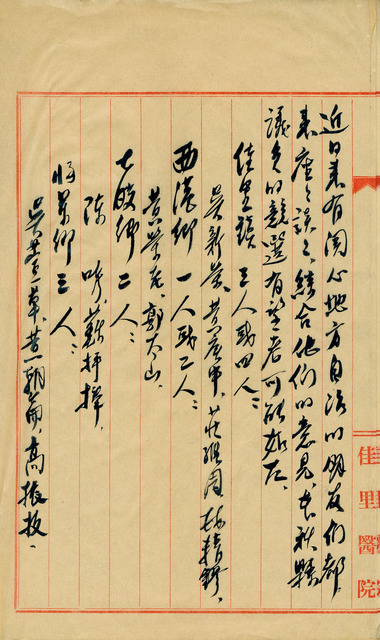 近日來有関心地方自治的朋友們都
來座々談々、綜合他們的意見、本秋縣
議員的競選有望者可能如左、
佳里鎮 三人或四人:
吳新榮、黃庚申、莊維周
西港鄉 一人或二人:
黃榮花、郭大山、
七股鄉 二人:
陳 蘇
將軍鄉 三人:
吳 草、黃朝 、高振
佳里醫院